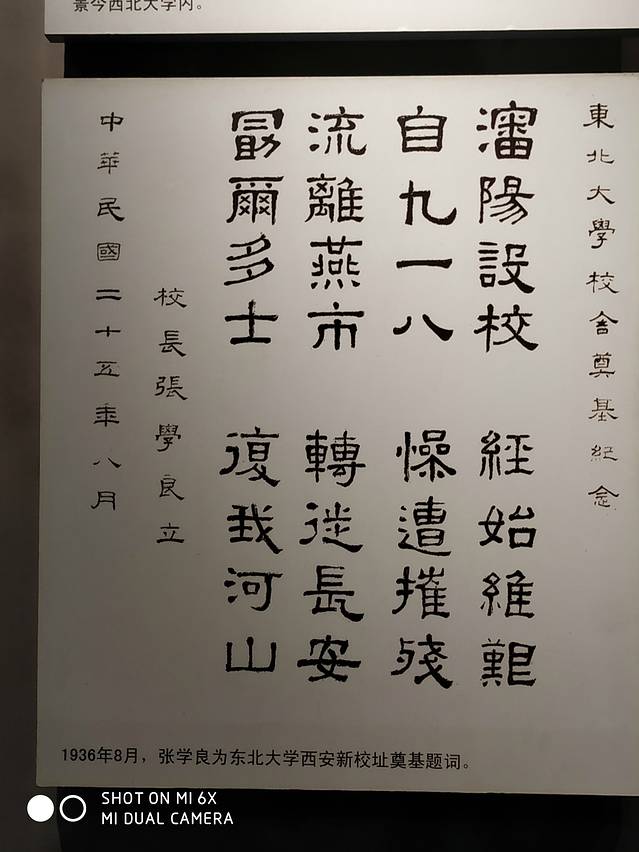 景今西北大学内。
東北大學校舍奠基紀念
瀋陽設校 經始維艱
自九一八 懆遭摧殘
流離燕市 轉徙長安
勗爾多士 復我河山
校長張學良立
中華民國二十五年八月
1936年8月，张学良为东北大学西安新校址奠基题词。
SHOT ON MI 6X
MI DUAL CAMERA